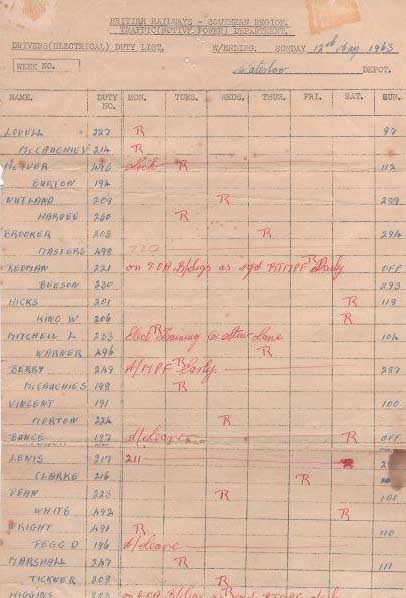 BRITISH RAILWAYS - SOUTHERN REGION.
TRAFFIC (MOTIVE POWER) DEPARTMENT.
DRIVERS (ELECTRICAL) DUTY LIST. W/ENDING. SUNDAY 12th May 1963
WEEK NO. Waterloo DEPOT.
NAME. DUTY NO. MON. TUES. WEDS. THUR. FRI. SAT. SUN.
LOVELL 227 R 97
McCAUGHIEY 214 R
R 112
BURTON 194
RUTLAND 209 R 289
HARDEE 250 R
BROOKER 205 R 294
MASTERS 498 220
REDMAN 221 on 7.0A B/digs as rqd RTMPF R Daily OFF
BEESON 230 293
HICKS 201 R 118
KING W. 206 R
MITCHELL L 233 Elect R Training @ Stewarts Lane 104
WARNER 496 R
BERRY 249 A/MPF R Early 287
McCAUGHIES 198 R
VINCENT 191 100
MORTON 224 R
BANCE 197 A/Leave R OFF
LEWIS 217 211 R
CLARKE 216 R
DEAN 223 R 101
WHITE 492 R
WRIGHT 491 R 110
PEGG D 196 A/Leave
MARSHALL 247 R 111
TICKNER 208 R
HIGGINS 203